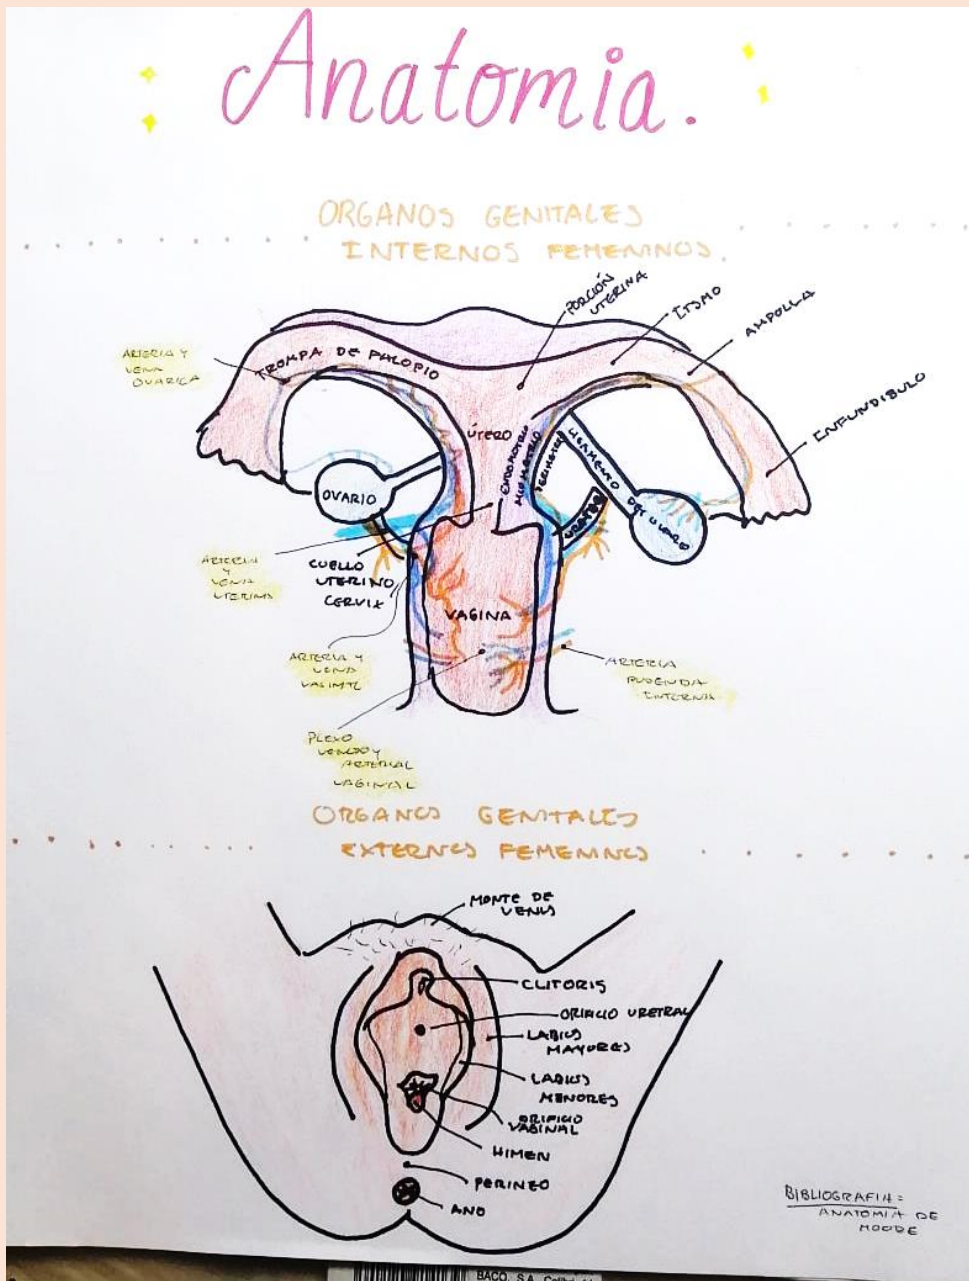 Anatomia.
ORGANOS GENITALES
INTERNOS FEMENINOS.
PORCIÓN
UTERINA
ITSMO
AMPOLLA
INFUNDIBULO
ARTERIA Y
VENA
OVARICA
TROMPA DE FALOPIO
ÚTERO
ENDOMETRIO
MIOMETRIO
PERIMETRIO
LIGAMENTO DEL OVARIO
OVARIO
URETER
ARTERIA
Y
VENA
UTERINA
CUELLO
UTERINO
CERVIX
VAGINA
ARTERIA Y
VENA
VAGINAL
ARTERIA
PUDENDA
INTERNA
PLEXO
VENOSO Y
ARTERIAL
VAGINAL
ORGANOS GENITALES
EXTERNOS FEMENINOS
MONTE DE
VENUS
CLITORIS
ORIFICIO URETRAL
LABIOS
MAYORES
LABIOS
MENORES
ORIFICIO
VAGINAL
HIMEN
PERINEO
ANO
BIBLIOGRAFIA:
ANATOMIA DE
MOORE
BACO, S.A.